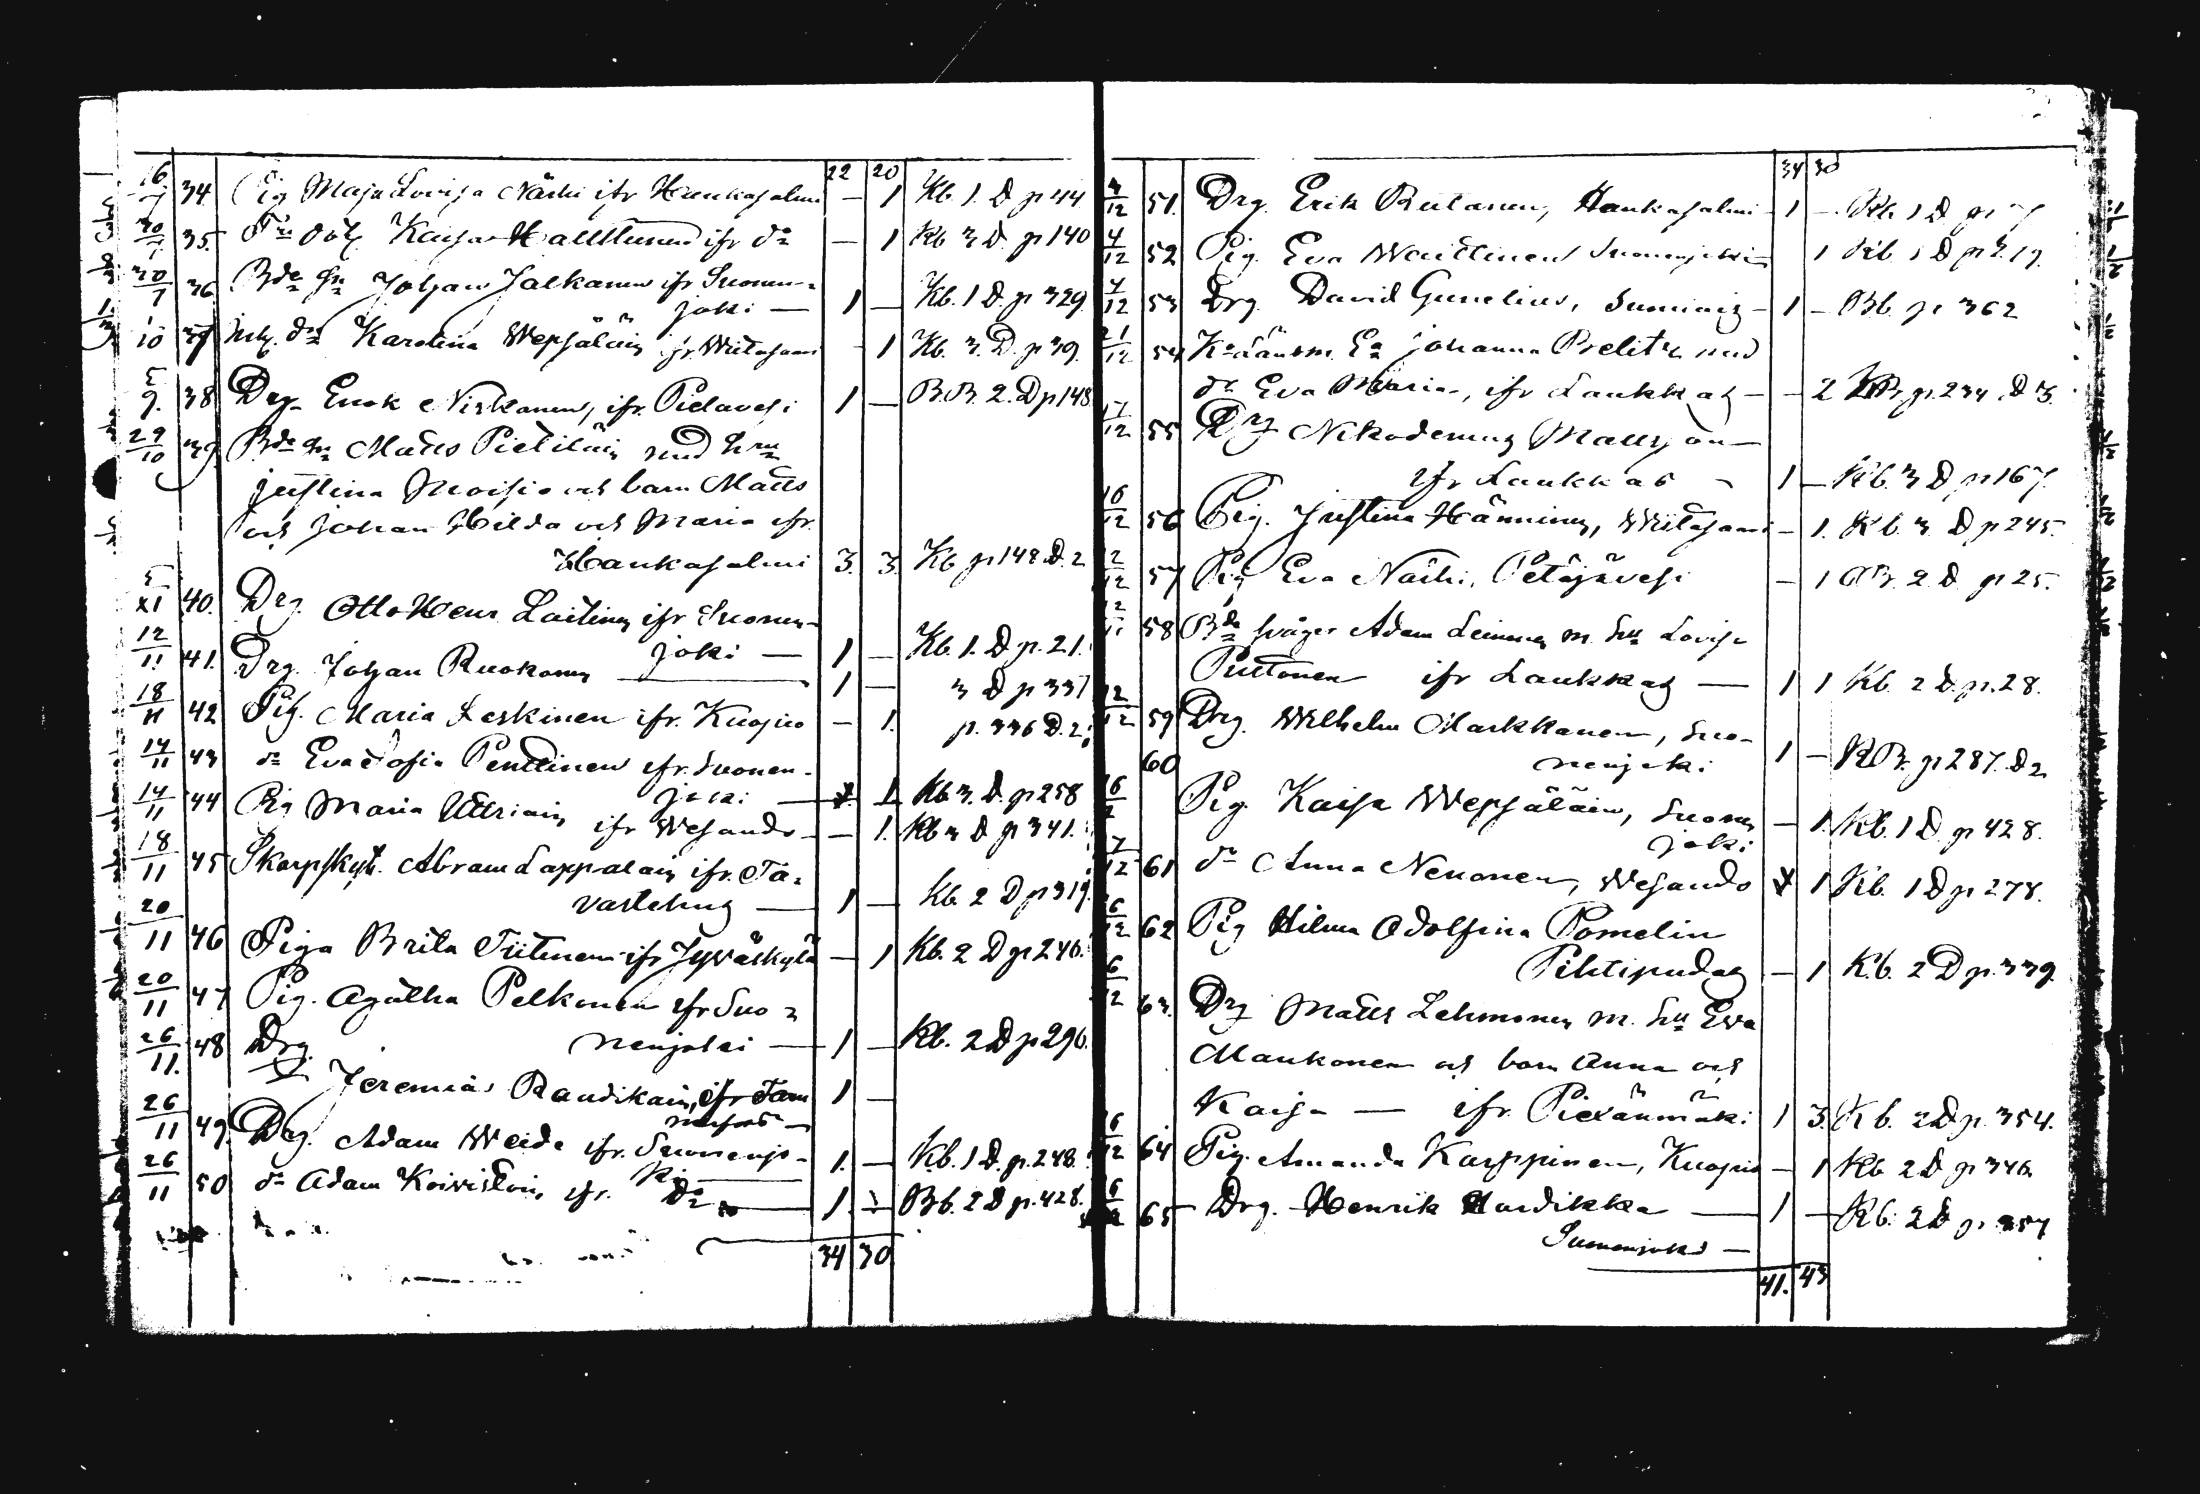 22 20
16/7 34 Pig Maja Lovisa Närhi ifr Hankasalmi — 1 Kb. 1. D p 44
20/7 35. Kaisa Halttunen ifr do — 1 Kb 3 D. p 140
20/7 36 Bde Sn Johan Jalkanen ifr Suonen=
joki — 1 — Kb. 1 D. p 329
1/10 37 Karolina Wepsäläin ifr Wiitasaari — 1 Kb. 3. D. p 39.
5/9. 38 Drg. Enok Niskanen, ifr. Pielavesi 1 — B.B. 2. D p 148
29/10 39 Bde Sn Matts Pietiläin med hru
Justina Moisio och barn Matts
och Johan Hilda och Maria ifr.
Hankasalmi 3. 3. Kb p 148 D. 2
5/XI 40. Drg. Otto Henr Laitinen ifr Suonen-
joki — 1 — Kb. 1. D p. 21.
12/11 41. Drg. Johan Ruokonen — 1 — 3 D p 337
18/11 42 Pig. Maria Leskinen ifr. Kuopio — 1. p. 336 D. 2.
14/11 43 do Eva Sofia Penttinen ifr. Suonen-
joki — 1 Kb 3. D. p 258
14/11 44 Pig Maria Uttriain ifr Wesando — 1. Kb 3 D p 341.
18/11 45 Skarpskytt. Abram Lappalain ifr. Ta=
vastehus — 1 — Kb. 2 D p 319.
20/11 46 Piga Brita Tiitinen ifr Jyväskylä — 1 Kb. 2 D p 246.
20/11 47 Pig. Agatha Pelkonen ifr Suo=
nenjoki — 1 — Kb. 2 D p 296.
26/11. 48 Drg.
Jeremias Raudikain, ifr Tam 1 —
26/11 49. Drg. Adam Weide ifr. Suonenjo-
ki — 1. — Kb. 1 D. p. 248.
26/11 50 do Adam Koivistoin ifr. Do — 1. — Bb. 2 D p. 428.
34 30
34 30
3/12 51. Drg. Erik Rutanen, Hankasalmi — 1 — Kb. 1 D p
4/12 52 Pig. Eva Wäittinen Suonenjoki — 1 Kb. 1 D p 219.
4/12 53 Drg. David Gunelius, Suminais — 1 — Bb. p 362
21/12 54 Ko Länsm. Ea Johanna Prelitz med
dr Eva Maria, ifr Laukkas — — 2 p. 234. D 3.
17/12 55 Drg Nikodemus Mattsson —
ifr Laukkas — 1 — Kb. 3 D p 167.
16/12 56 Pig. Justina Hänninen, Wiitasaari — 1. Kb. 3 D p 245.
12/12 57 Pig Eva Närhi, Petäjävesi — 1 BB. 2 D p 25.
58 Bde Svåger Adam Leinonen m. hu Lovisa
Puttonen ifr Laukkas — 1 1 Kb. 2 D. p. 28.
12/12 59 Drg. Wilhelm Markkanen, Suo-
nenjoki 1 — KB. p 287. D 2
60 Pig. Kaisa Wepsäläin, Suonen
joki — 1. Kb. 1 D. p 428.
7/12 61 do Anna Nenonen, Wesando 1 Kb. 1 D p 278.
6/12 62 Pig Hilma Adolfina Pomelin
Pihtipudas — 1 Kb. 2 D p. 339.
6/12 63. Drg Matts Lehmonen m. hu Eva
Maukonen och barn Anna och
Kaisa — ifr. Pieksänmäki 1 3. Kb. 2 D p. 354.
6/12 64 Pig. Amanda Karppinen, Kuopio — 1 Kb 2 D p 346.
6/12 65 Drg. Henrik Hardikka — 1 — Kb. 2 D p. 357
Suonenjoki —
41. 43